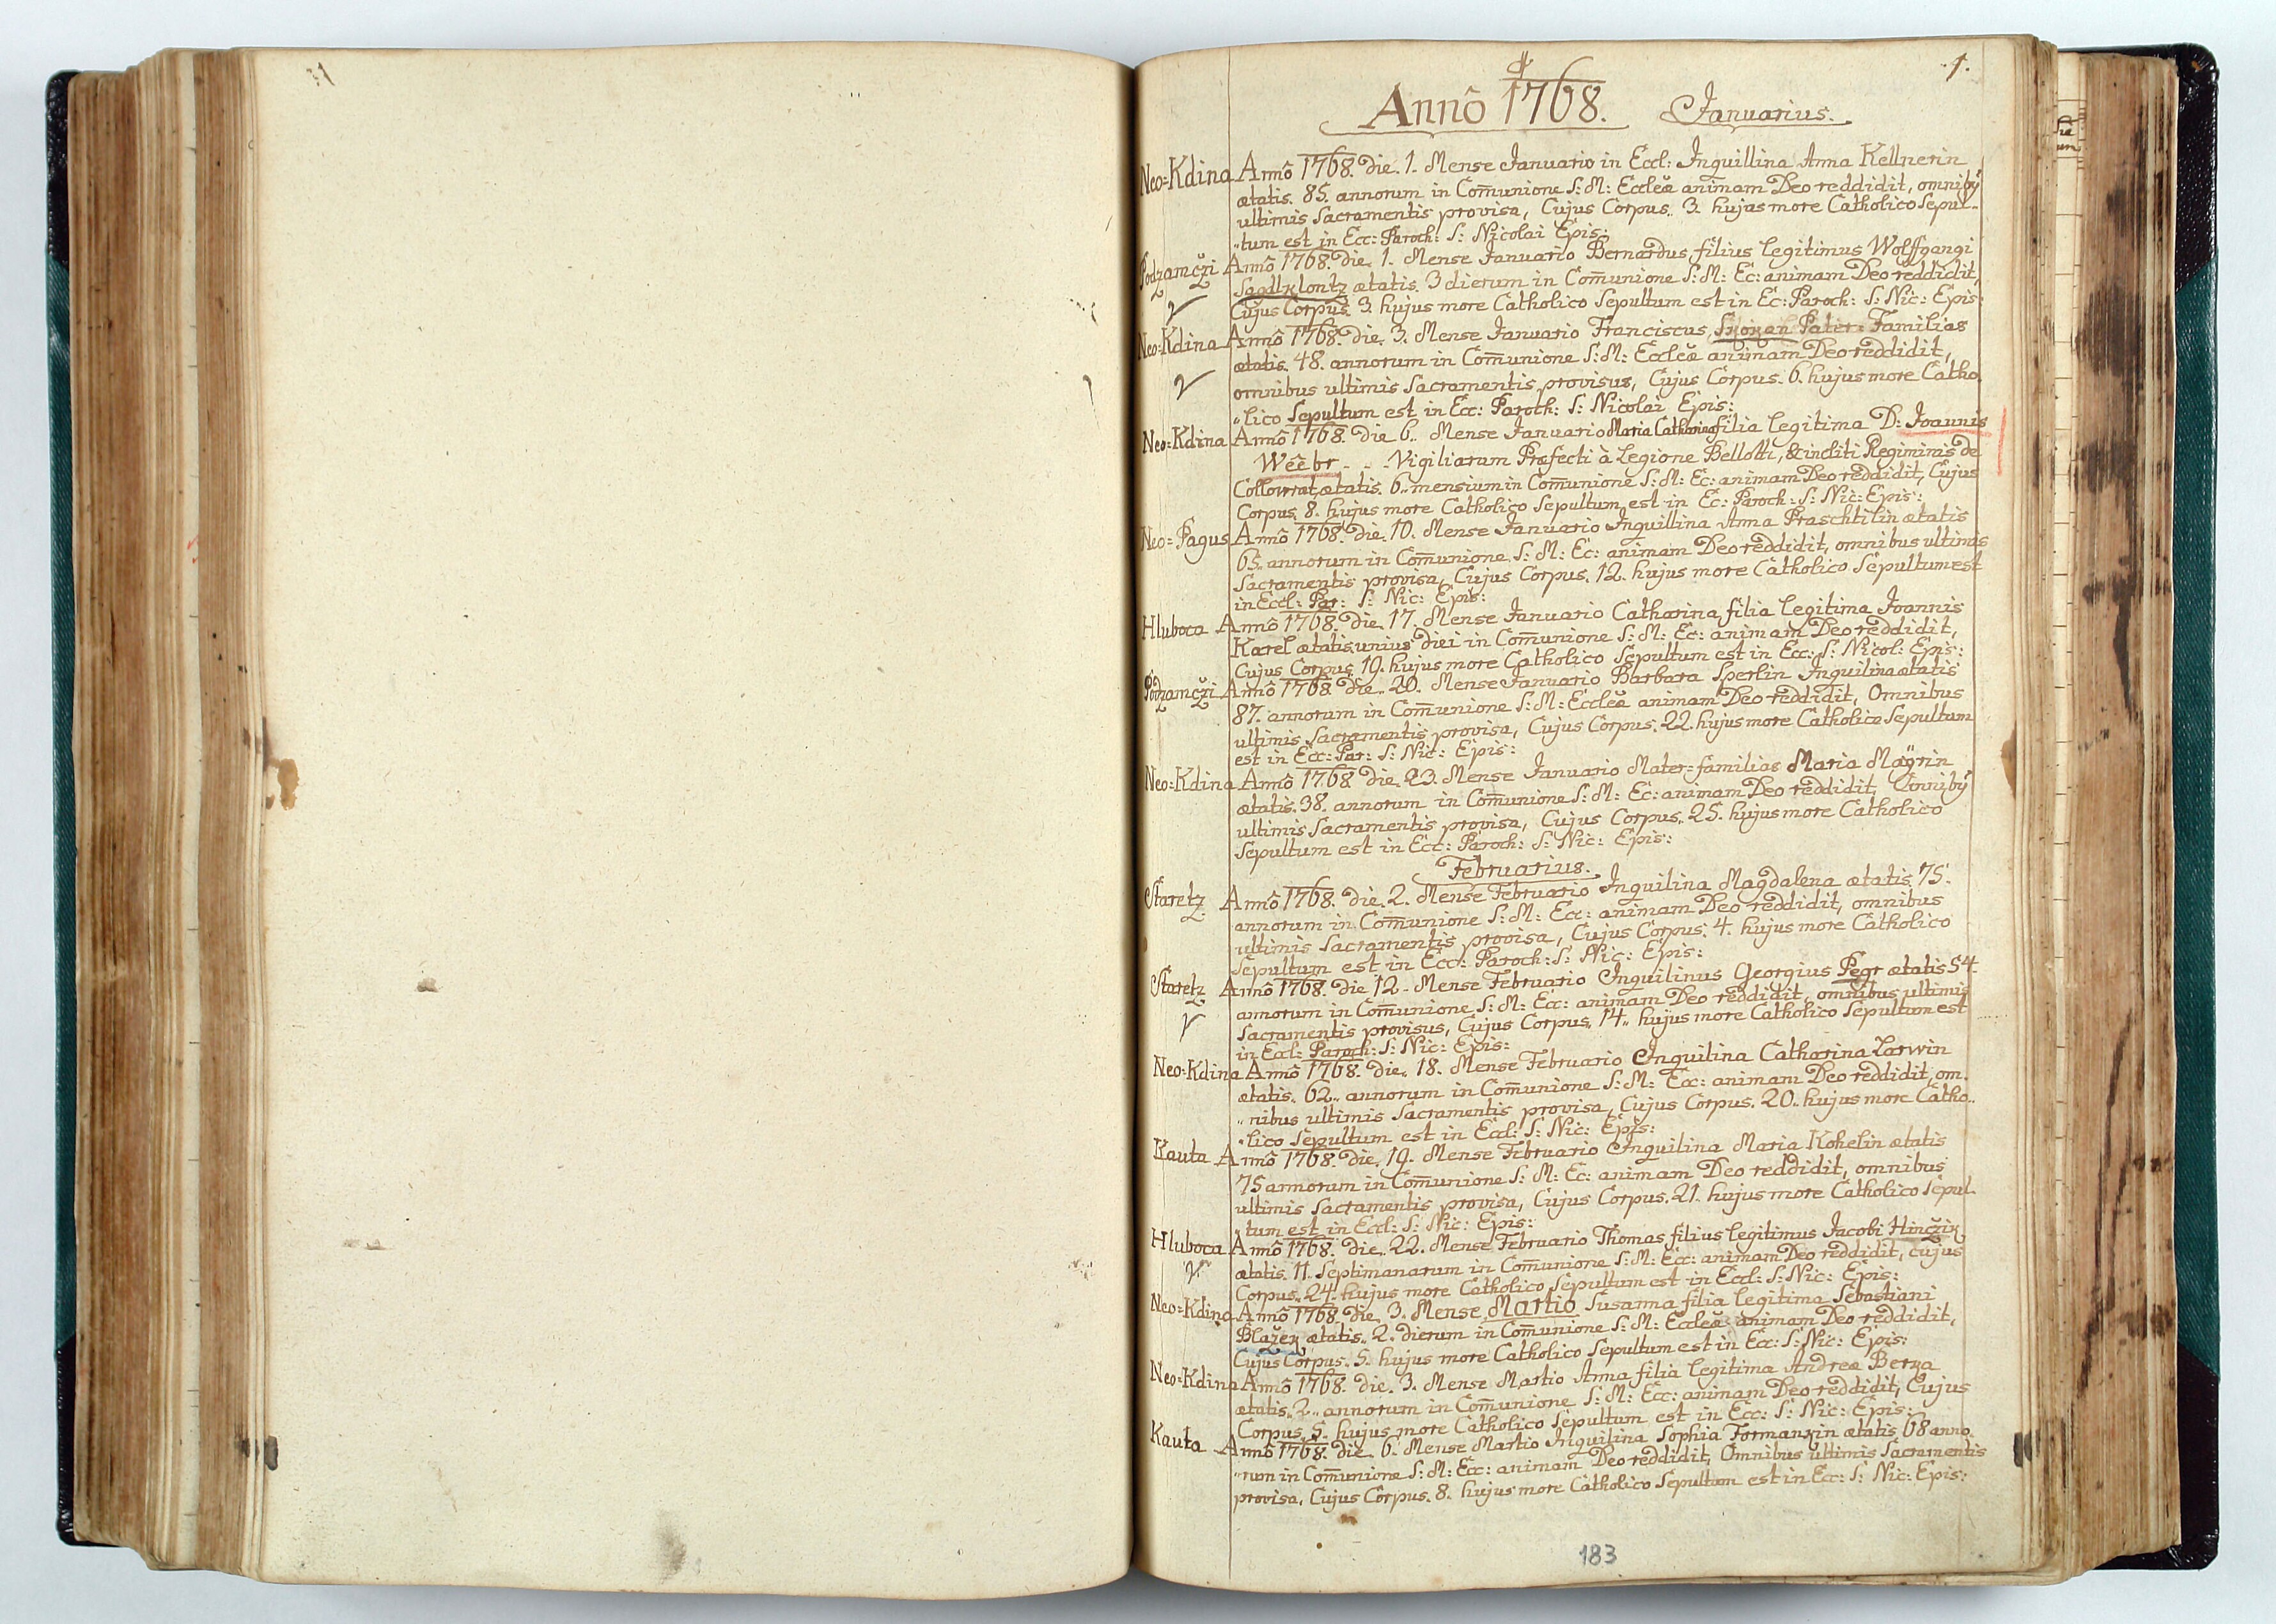 1.
Annô 1768. Januarius.
Neo=Kdina Annô 1768. Die. 1. Mense Januario in Eccl: Inquillina Anna Kellnerin
ætatis. 85. annorum in Com̄unione S: M: Eccleæ animam Deo reddidit, omnibꝰ
ultimis Sacramentis provisa, Cujus Corpus. 3. hujus more Catholico Sepul-
„tum est in Ecc: Paroch: S: Nicolai Epis:
Podzamczi Annô 1768. Die. 1. Mense Januario Bernardus filius legitimus Wolffgangi
ætatis. 3 dierum in Com̄unione S: M: Ec: animam Deo reddidit,
Cujus Corpus. 3. hujus more Catholico Sepultum est in Ec: Paroch: S: Nic: Epis:
Neo=Kdina Annô 1768. Die. 3. Mense Januario Franciscus Pater=Familias
ætatis. 48. annorum in Com̄unione S: M: Eccleæ animam Deo reddidit,
omnibus ultimis Sacramentis provisus, Cujus Corpus. 6. hujus more Catho.
„lico Sepultum est in Ecc: Paroch: S: Nicolai Epis:
Neo=Kdina Annô 1768. Die 6.. Mense Januario Maria Catharina filia legitima D: Joannis
Wêêbr - - - Vigiliarum Præfecti à Legione Bellotti, & incliti Regiminis de
Collowrat, ætatis. 6.. mensium in Com̄unione S: M: Ec: animam Deo reddidit, Cujus
Corpus. 8. hujus more Catholico Sepultum est in Ec: Paroch: S: Nic: Epis:
Neo=Pagus Annô 1768. Die. 10. Mense Januario Inquillina Anna Praschtilin ætatis
65. annorum in Com̄unione S: M: Ec: animam Deo reddidit, omnibus ultimis
Sacramentis provisa, Cujus Corpus. 12. hujus more Catholico Sepultum est
in Eccl: Par: S: Nic: Epis:
Hluboca Annô 1768. Die. 17. Mense Januario Catharina filia legitima Joannis
Karel ætatis unius diei in Com̄unione S: M: Ec: animam Deo reddidit,
Cujus Corpus. 19. hujus more Catholico Sepultum est in Ecc: S: Nicol: Epis:
Podzamczi Annô 1768 Die.. 20. Mense Januario Barbara Sperlin Inquilina ætatis
87. annorum in Com̄unione S: M: Eccleæ animam Deo reddidit, Omnibus
ultimis Sacramentis provisa, Cujus Corpus. 22. hujus more Catholico Sepultum
est in Ecc: Par: S: Nic: Epis:
Neo=Kdina Annô 1768 Die. 23. Mense Januario Mater=familias Maria Maÿrin
ætatis. 38. annorum in Com̄unione S: M: Ec: animam Deo reddidit, Omnibꝰ
ultimis Sacramentis provisa, Cujus Corpus. 25. hujus more Catholico
Sepultum est in Ecc: Paroch: S: Nic: Epis:
Februarius.
Staretz Annô 1768. Die. 2. Mense Februario Inquilina Magdalena ætatis 75.
annorum in Com̄unione S: M: Ecc: animam Deo reddidit, omnibus
ultimis Sacramentis provisa, Cujus Corpus. 4. hujus more Catholico
Sepultum est in Eccr: Paroch: S: Nic: Epis:
Staretz Annô 1768. Die 12 - Mense Februario Inquilinus Georgius Pegr ætatis 54
annorum in Com̄unione S: M: Ecc: animam Deo reddidit, omnibus ultimis
Sacramentis provisus, Cujus Corpus. 14.. hujus more Catholico Sepultum est
in Eccl: Paroch: S: Nic: Epis:
Neo=Kdina Annô 1768. Die. 18. Mense Februario Inquilina Catharina Larwin
ætatis. 62.. annorum in Com̄unione S: M: Ecc: animam Deo reddidit, om.
„nibus ultimis Sacramentis provisa, Cujus Corpus. 20.. hujus more Catho..
„lico Sepultum est in Eccl: S: Nic: Epis:
Kauta Annô 1768. Die. 19. Mense Februario Inquilina Maria Kohelin ætatis
75 annorum in Com̄unione S: M: Ec: animam Deo reddidit, omnibus
ultimis Sacramentis provisa, Cujus Corpus. 21. hujus more Catholico Sepul.
„tum est in Eccl: S: Nic: Epis:
Hluboca Annô 1768. Die.. 22. Mense Februario Thomas filius legitimus Jacobi Hinczik
ætatis. 11. Septimanarum in Com̄unione S: M: Ecc: animam Deo reddidit, cujus
Corpus.. 24. hujus more Catholico Sepultum est in Eccl: S: Nic: Epis:
Neo=Kdina Annô 1768. Die. 3. Mense Martio Susanna filia legitima Sebastiani
Blažek ætatis.. 2. dierum in Com̄unione S: M: Eccleæ animam Deo reddidit,
Cujus Corpus. 5. hujus more Catholico Sepultum est in Ecc: S: Nic: Epis:
Neo=Kdina Annô 1768. Die. 3. Mense Martio Anna filia legitima Andreæ Berka
ætatis. 2.. annorum in Com̄unione S: M: Ecc: animam Deo reddidit, Cujus
Corpus. 5. hujus more Catholico Sepultum est in Ecc: S: Nic: Epis:
Kauta Annô 1768. Die. 6. Mense Martio Inquilina Sophia Formankin ætatis 68 anno.
„rum in Com̄unione S: M: Ecc: animam Deo reddidit, Omnibus ultimis Sacramentis
provisa, Cujus Corpus. 8. hujus more Catholico Sepultum est in Ecc: S: Nic: Epis:
183